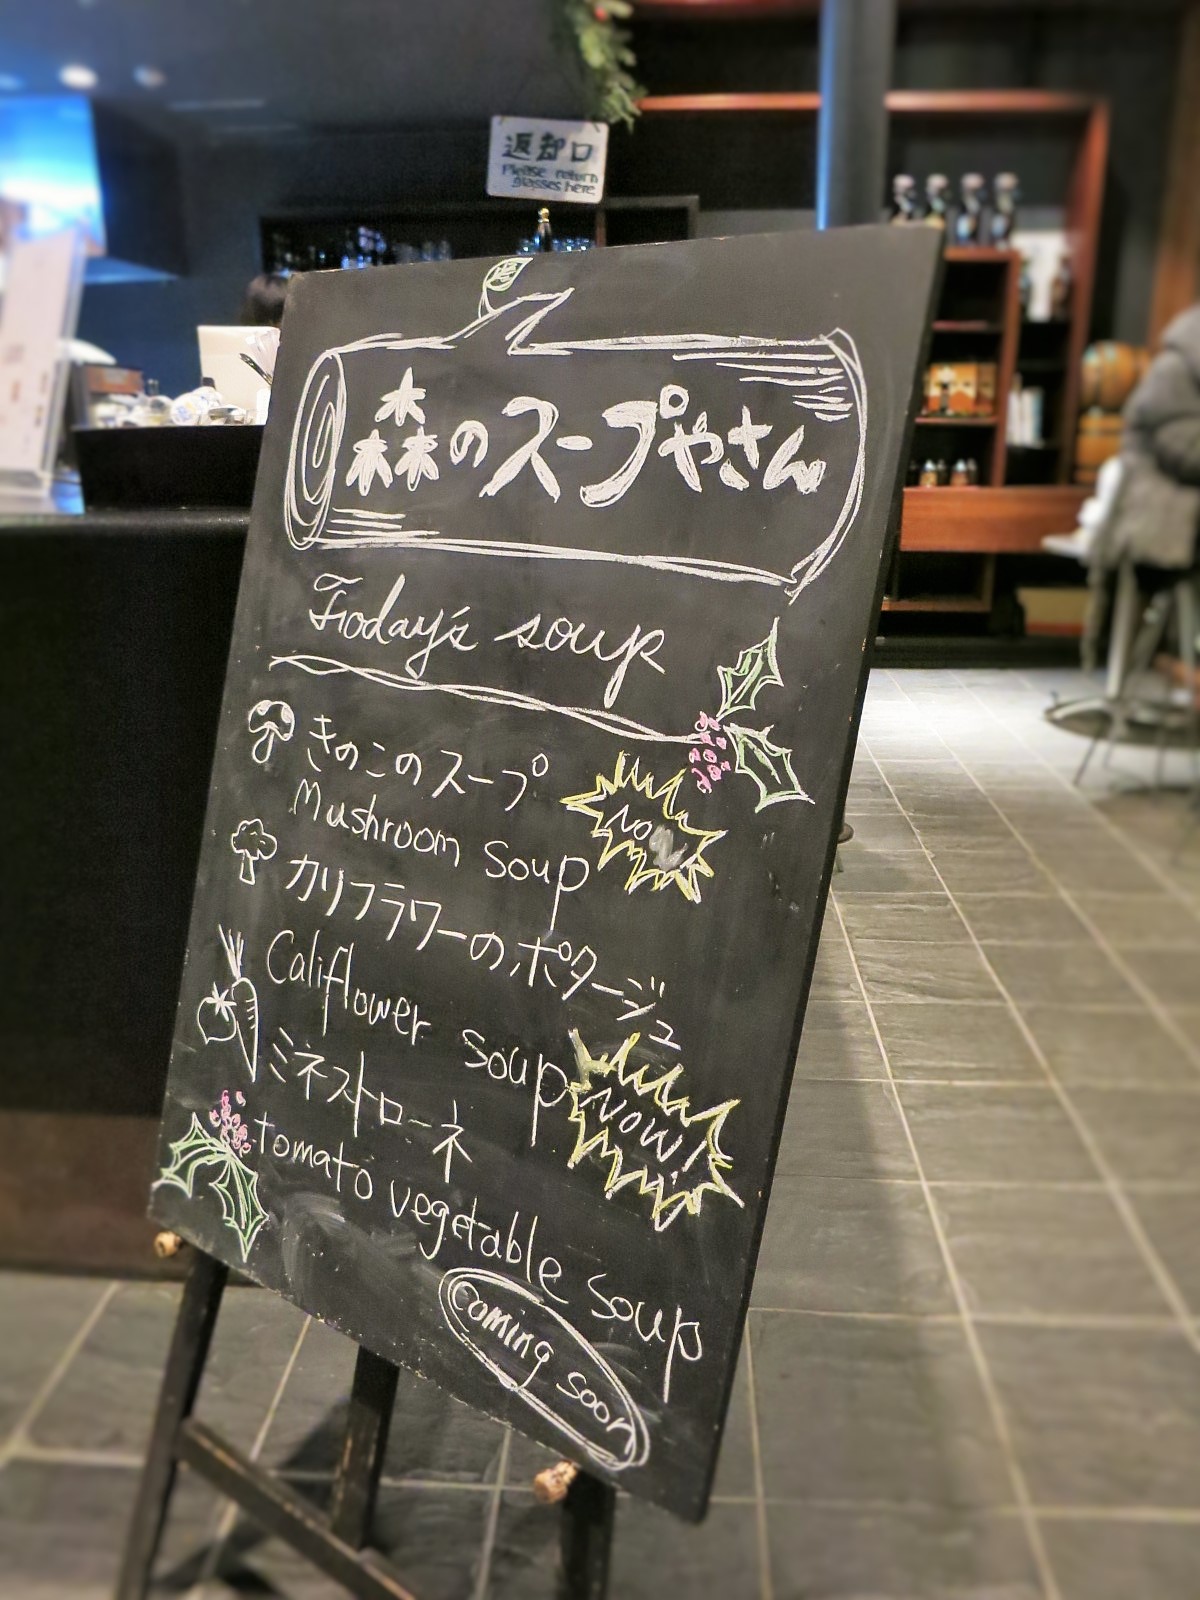 返却口
Please return
glasses here
森のスープやさん
Today's soup
きのこのスープ
Mushroom Soup
カリフラワーのポタージュ
Califlower soup
NOW!
ミネストローネ
tomato vegetable soup
Coming soon